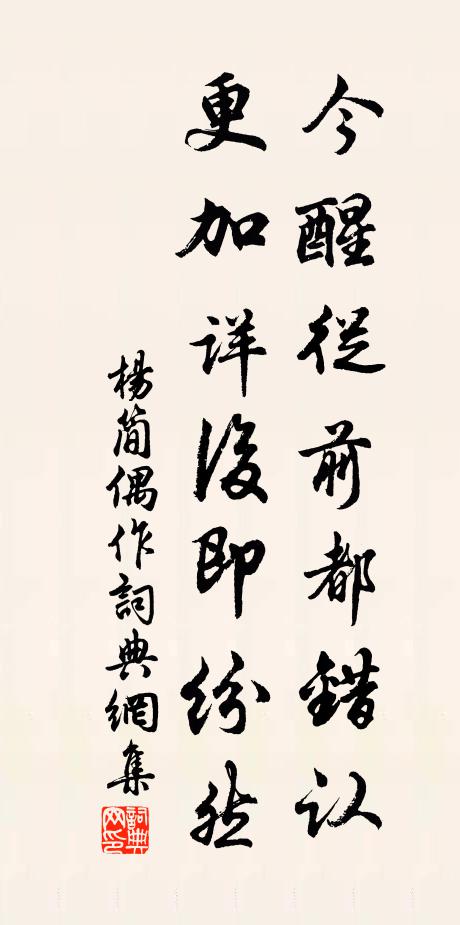 今醒從前都錯认
更加详後即纷然
楊简偶作詞典網集
詞典网印